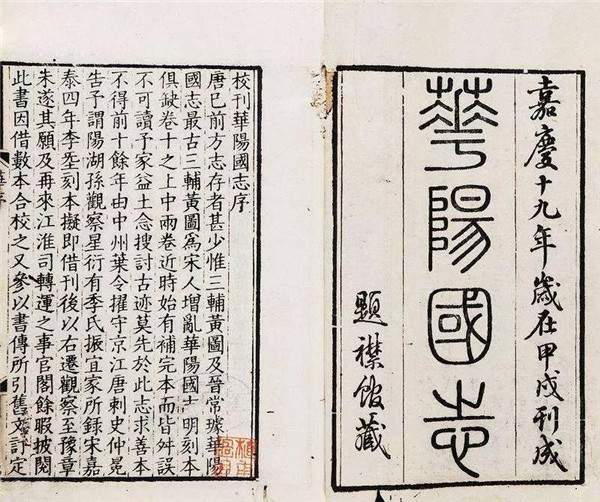 嘉慶十九年歲在甲戌刊成
華陽國志
題襟館藏
校刊華陽國志序
唐已前方志存者甚少惟三輔黃圖及晉常璩華陽
國志最古三輔黃圖爲宋人增亂華陽國志明刻本
俱缺卷十之上中兩卷近時始有補完本而皆舛誤
不可讀予家益土念搜討古迹莫先於此志求善本
不得前十餘年由中州葉令擢守京江唐刺史仲冕
告予謂陽湖孫觀察星衍有季氏振宜家所錄宋嘉
泰四年李𡌴刻本擬即借刊後以右遷觀察至豫章
未遂其願及再來江淮司轉運之事官閣餘暇披閱
此書因借數本合校之又參以書傳所引舊文訂定